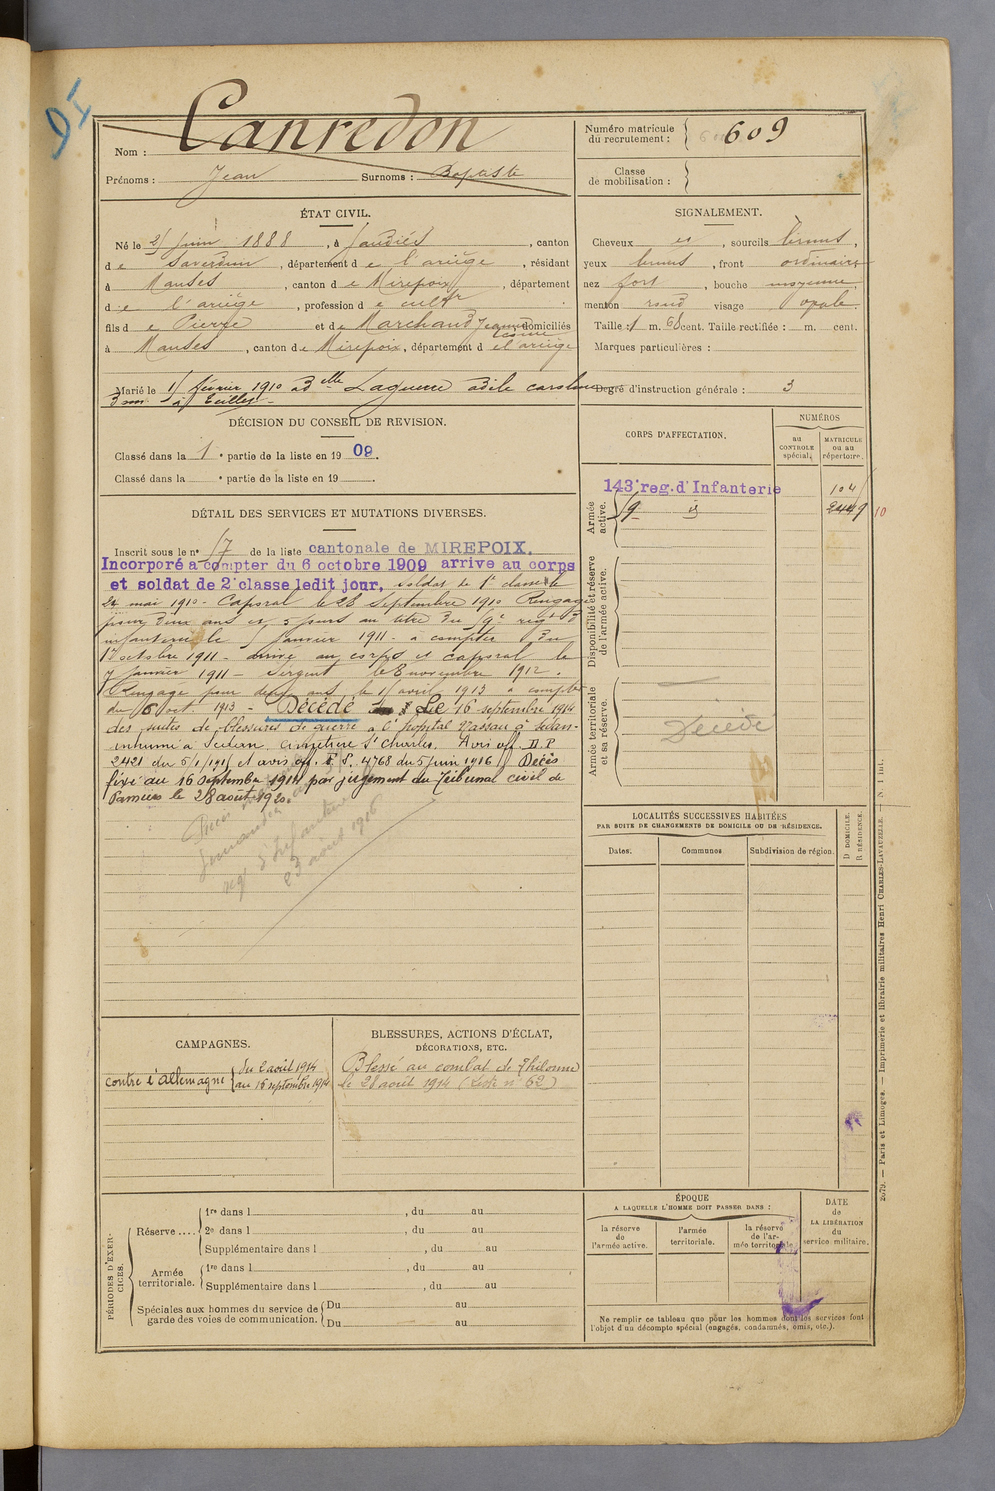 Canredon
Nom :
Prénoms : Jean Surnoms : Baptiste
Numéro matricule du recrutement : 609
Classe de mobilisation :
ÉTAT CIVIL.
Né le 21 Juin 1888, à Gaudiès, canton
de Saverdun, département de l'ariège, résidant
à Manses, canton de Mirepoix, département
de l'ariège, profession de cultr
fils de Pierre et de Marchand Jeanne domiciliés
à Manses, canton de Mirepoix, département de l'ariège
Marié le 1 février 1910 à Dlle Laguerre
SIGNALEMENT.
Cheveux et, sourcils bruns,
yeux bruns, front ordinaire
nez fort, bouche moyenne,
menton rond visage ovale.
Taille : 1 m. cent. Taille rectifiée : m. cent.
Marques particulières :
Degré d'instruction générale : 3
DÉCISION DU CONSEIL DE REVISION.
Classé dans la 1e partie de la liste en 1909.
Classé dans la e partie de la liste en 19 .
DÉTAIL DES SERVICES ET MUTATIONS DIVERSES.
Inscrit sous le n° 17 de la liste cantonale de MIREPOIX.
Incorporé à compter du 6 octobre 1909 arrive au corps
et soldat de 2e classe ledit jour, soldat de 1e classe le
24 mai 1910 - Caporal le 28 Septembre 1910 Rengagé
pour deux ans et 5 jours au titre du 9e regt d'
infanterie le janvier 1911 - à compter du
1 octobre 1911 - arrivé au corps et caporal le
7 janvier 1911 - Sergent le 8 novembre 1912.
Rengagé pour deux ans le 11 avril 1913 à compter
du 6 oct. 1913 - Décédé Le 16 septembre 1914
des suites de blessures de guerre à l'hopital Nassau à Sedan-
inhumé à Sedan cimetière St Charles. Avis off. D.P
2421 du 5/1/1915 et avis off. F.S. 4768 du 5 juin 1916 Décès
fixé au 16 Septembre 1914 par jugement du Tribunal civil de
Pamiers le 28 août 1920.
regt d'Infanterie
23 avril 1916
CORPS D'AFFECTATION.
NUMÉROS
au CONTROLE spécial.
MATRICULE ou au répertoire.
Armée active.
143e reg. d'Infanterie 104
9 2449 10
Disponibilité et réserve de l'armée active.
Armée territoriale et sa réserve.
Décédé
LOCALITÉS SUCCESSIVES HABITÉES
PAR SUITE DE CHANGEMENTS DE DOMICILE OU DE RÉSIDENCE.
Dates. Communes. Subdivision de région.
D DOMICILE. R RÉSIDENCE.
CAMPAGNES.
contre l'allemagne du 2 août 1914
au 16 septembre 1914
BLESSURES, ACTIONS D'ÉCLAT,
DÉCORATIONS, ETC.
Blessé au combat de Thelonne
le 28 août 1914 (Liste n° 62)
PÉRIODES D'EXERCICES.
Réserve ....
1re dans l , du au
2e dans l , du au
Supplémentaire dans l , du au
Armée territoriale.
1re dans l , du au
Supplémentaire dans l , du au
Spéciales aux hommes du service de garde des voies de communication.
Du au
Du au
ÉPOQUE
A LAQUELLE L'HOMME DOIT PASSER DANS :
la réserve de l'armée active.
l'armée territoriale.
la réserve de l'armée territoriale.
DATE de LA LIBÉRATION du service militaire.
Ne remplir ce tableau que pour les hommes dont les services font
l'objet d'un décompte spécial (engagés, condamnés, omis, etc.).
2079. — Paris et Limoges. — Imprimerie et librairie militaires Henri CHARLES-LAVAUZELLE. — N. 1 int.